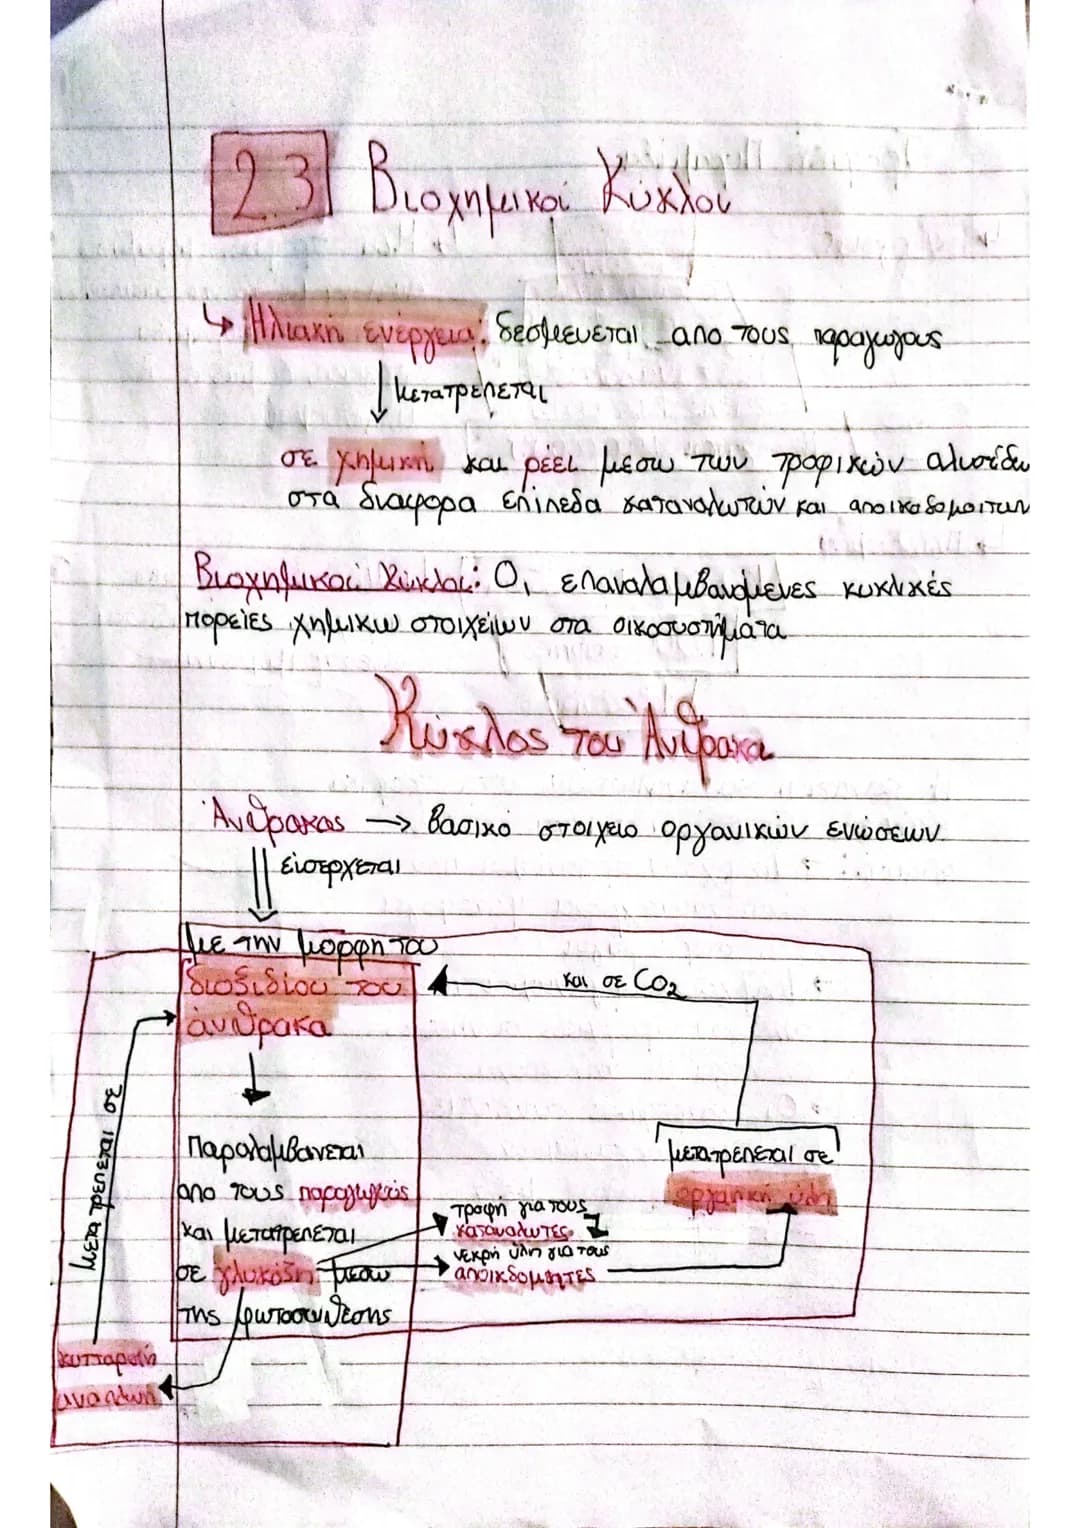 2.3 Βιοχημικοί Κύκλοι
↳ Ηλιακή ενέργεια: δεσμευεται απο τους παραγωγους
↓ μετατρεπεται
σε χημική και ρέει μεσω των τροφικών αλυσίδω
στα διαφορα επίπεδα καταναλωτών και αποικοδομοιτων
Βιοχημικοί Κύκλοι: Οι επαναλαμβανόμενες κυκλικές
πορείες χημικω στοιχείων στα οικοσυστήματα
Κύκλος του Άνθρακα
Άνθρακας → βασικό στοιχειο οργανικών ενώσεων
⇓ εισερχεται
με την μορφη του
διοξιδίου του
άνθρακα
και σε CO2
Παραλαμβανεται
απο τους παραγωγούς
και μετατρεπεται
σε γλυκόζη μεσω
της φωτοσυνθεσης
τροφή για τους
καταναλωτες
νεκρή ύλη για τους
αποικδομητες
μετατρεπεται σε
οργανική ύλη
μετατρεπεται σε
κυτταρική
αναπνοή